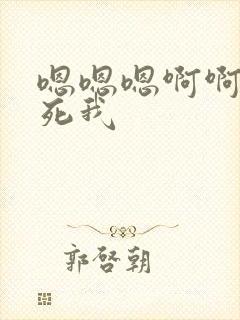 嗯嗯嗯啊啊
死我
郭啓朝